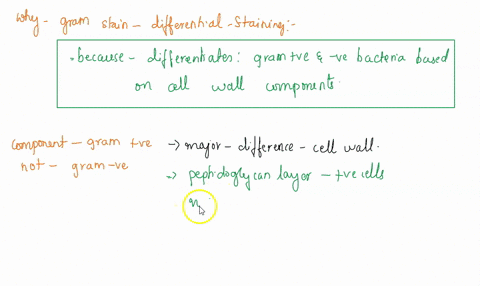 why - gram stain - differential - staining:-
. because - differentiates: gram +ve & -ve bacteria based
on cell wall components.
component - gram +ve
not - gram -ve
→ major - difference - cell wall.
→ peptidoglycan layer - +ve cells